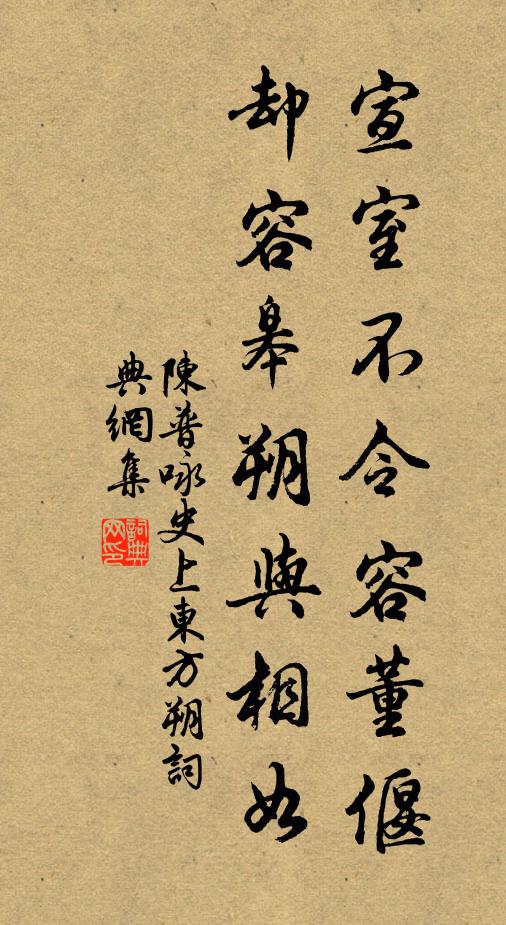 宣室不令容董偃
却容皋朔與相如
陳普咏史上東方朔詞
典網集
詞典網印